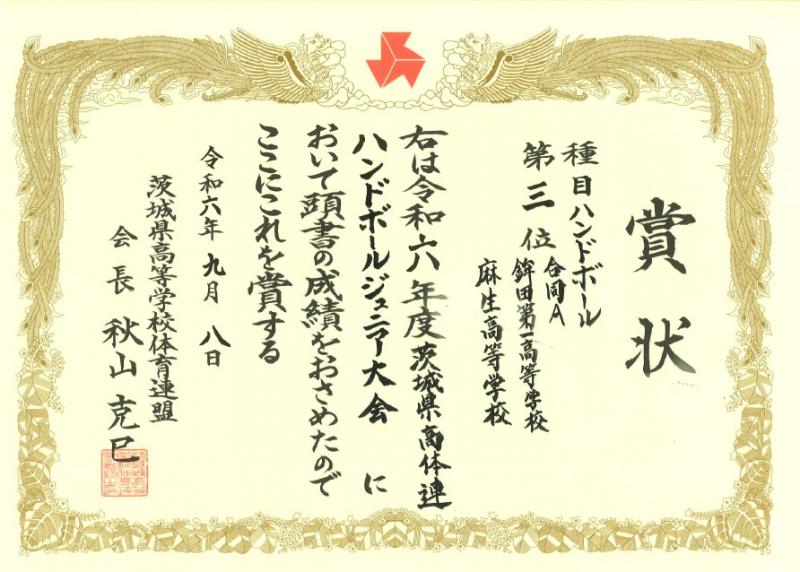 賞状
種目ハンドボール
第三位
合同A
鉾田第一高等学校
麻生高等学校
右は令和六年度茨城県高体連
ハンドボールジュニア大会に
おいて頭書の成績をおさめたので
ここにこれを賞する
令和六年九月八日
茨城県高等学校体育連盟
会長秋山克巳